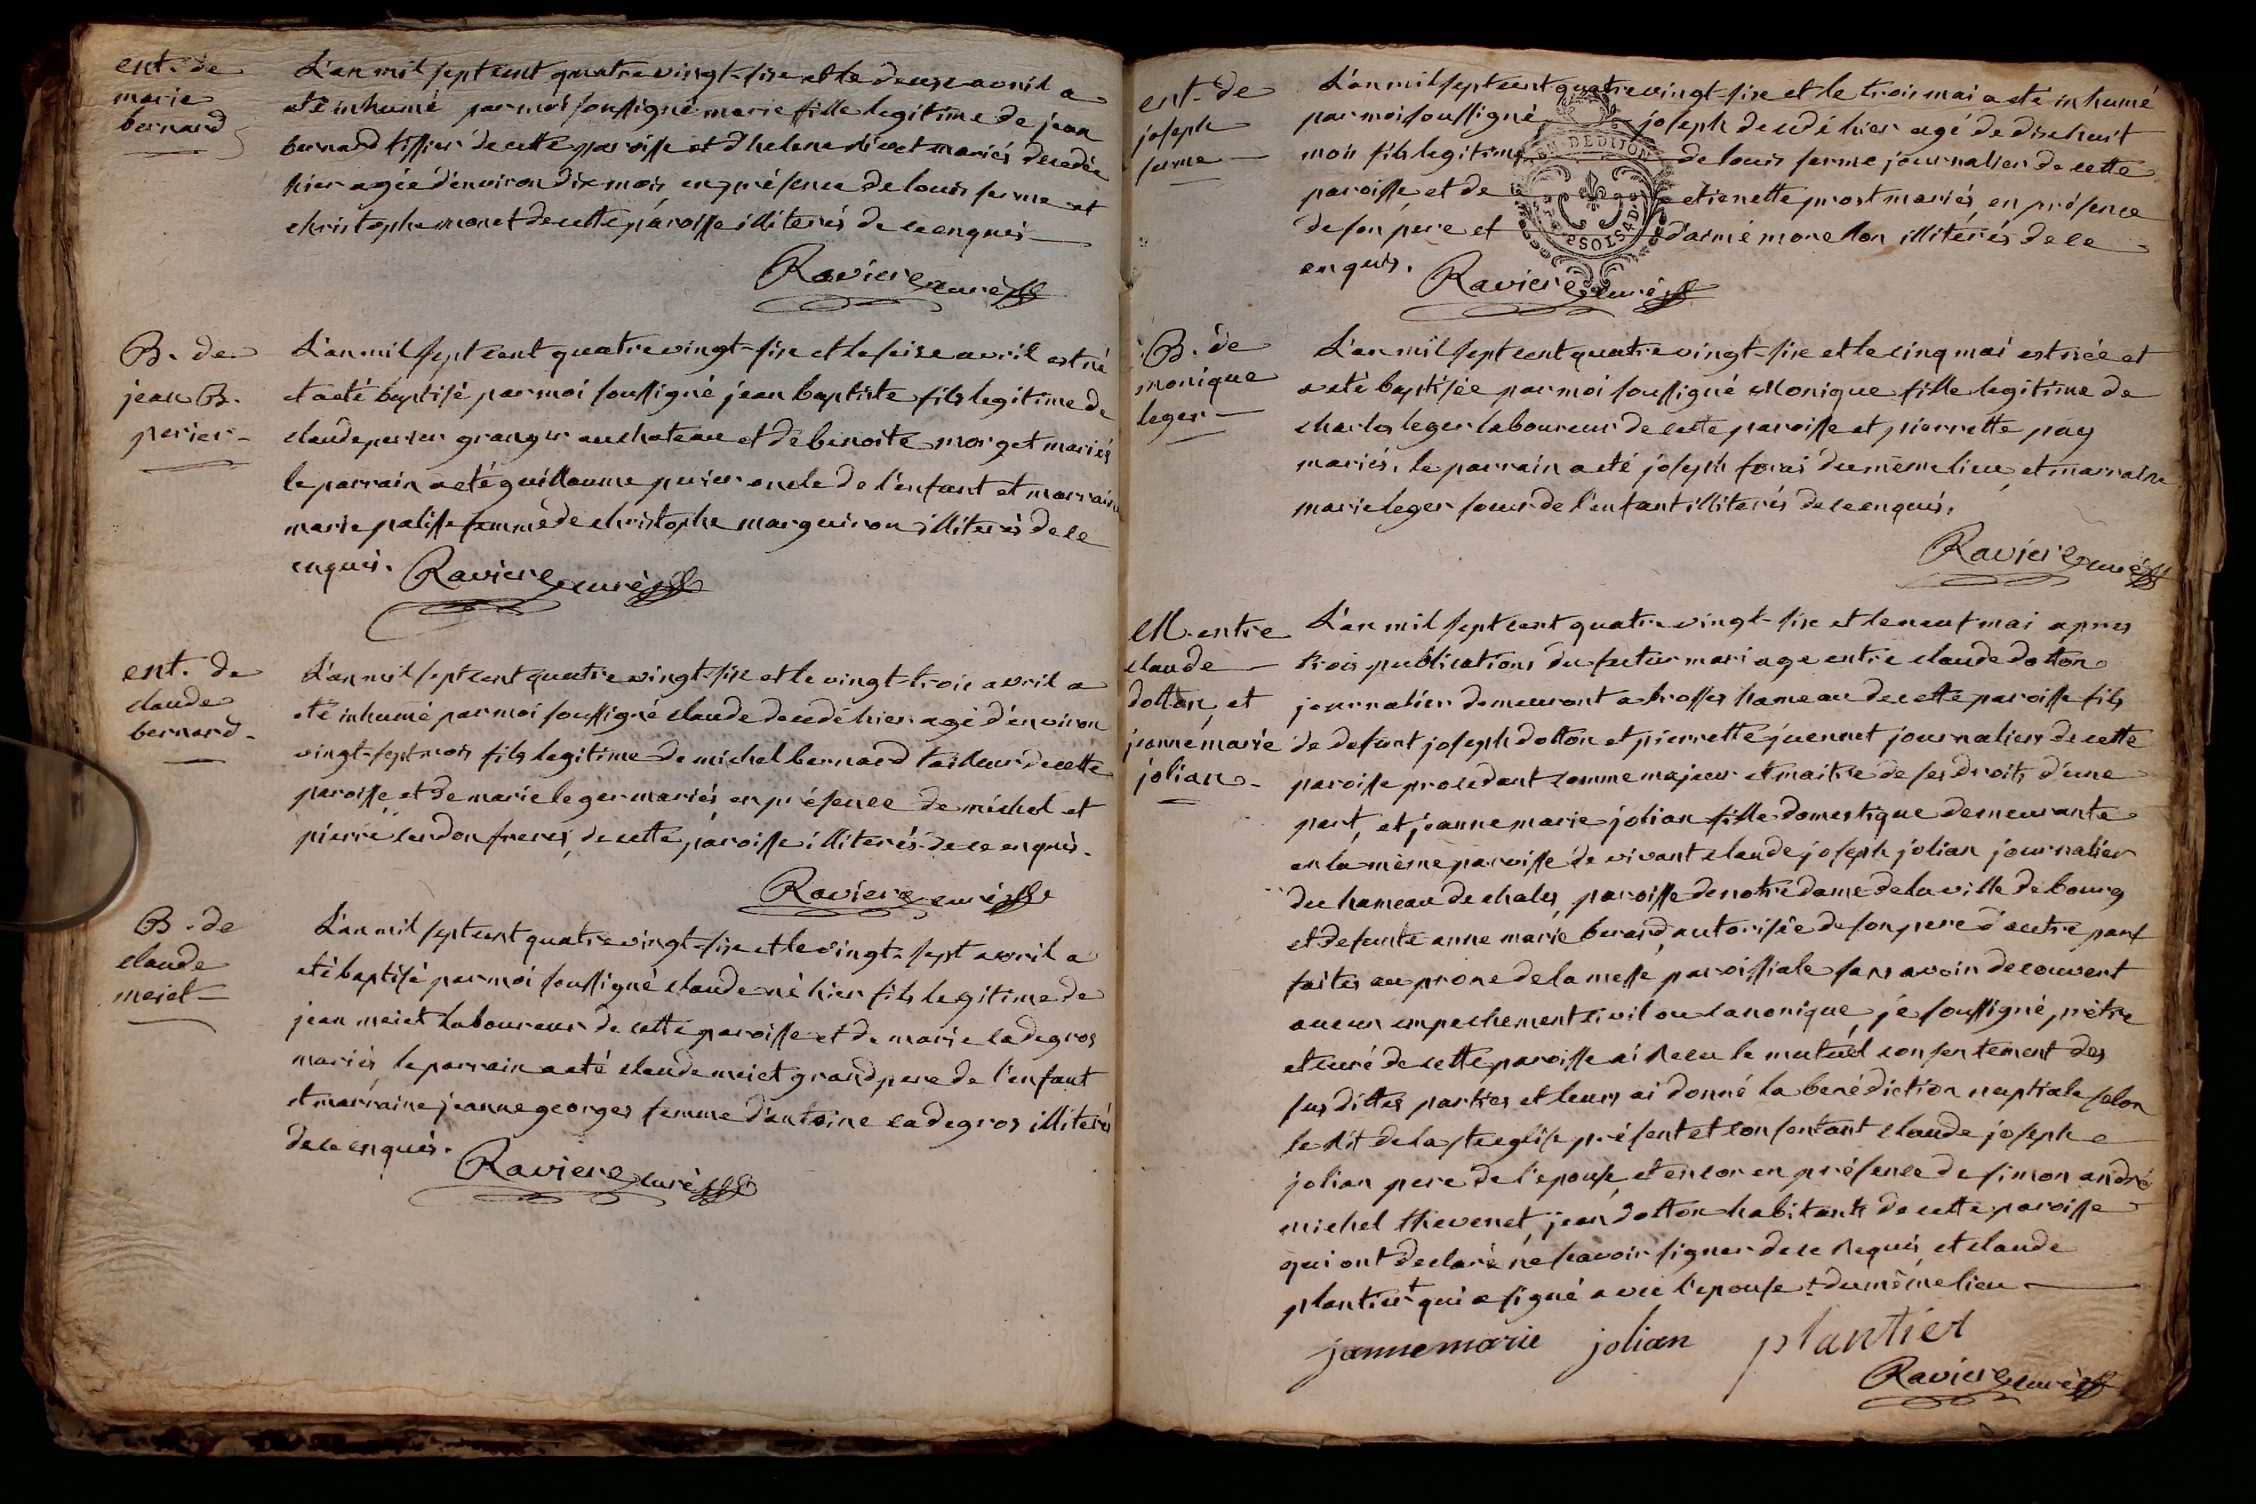 ent. de
marie
bernard
L'an mil sept cent quatre vingt-six et le douze avril a
eté inhumé par moi soussigné marie fille legitime de jean
bernard tissier de cette paroisse et d'helene mariés decedée
hier agée d'environ dix mois en présence de louis ferme et
christophe monet de cette paroisse illiterés de ce enquis
Raviere curé
B. de
jean B.
perier
L'an mil sept cent quatre vingt-six et le seize avril est né
et a eté baptisé par moi soussigné jean baptiste fils legitime de
claude perier granger au chateau et de benoite morget mariés
le parrain a eté guillaume perier oncle de l'enfant et marraine
marie palisse femme de christophe marguiron illiterés de ce
enquis. Raviere curé
ent. de
claude
bernard
L'an mil sept cent quatre vingt-six et le vingt-trois avril a
eté inhumé par moi soussigné claude decedé hier agé d'environ
vingt-sept mois fils legitime de michel bernard tailleur de cette
paroisse et de marie leger mariés en présence de michel et
pierre freres de cette paroisse illiterés de ce enquis.
Raviere curé
B. de
claude
meiet
L'an mil sept cent quatre vingt-six et le vingt-sept avril a
eté baptisé par moi soussigné claude né hier fils legitime de
jean meiet laboureur de cette paroisse et de marie cadegros
mariés le parrain a eté claude meiet grand pere de l'enfant
et marraine jeanne georges femme d'antoine cadegros illiterés
de ce enquis.
Raviere curé
ent. de
joseph
ferme
L'an mil sept cent quatre vingt-six et le trois mai a eté inhumé
par moi soussigné joseph decedé hier agé de dix huit
mois fils legitime de louis ferme journalier de cette
paroisse et de etienette prost mariés, en présence
de son pere et d'aimé monellon illiterés de ce
enquis.
GEN. DE DIJON
2 SOLS 4 D.
Raviere curé
B. de
monique
leger
L'an mil sept cent quatre vingt-six et le cinq mai est née et
a eté baptisée par moi soussigné Monique fille legitime de
charles leger laboureur de cette paroisse et pierrette
mariés, le parrain a eté joseph du même lieu, et marraine
marie leger soeur de l'enfant illiterés de ce enquis.
Raviere curé
M. entre
claude
dotton, et
jeanne marie
jolian
L'an mil sept cent quatre vingt-six et le neuf mai apres
trois publications du futur mariage entre claude dotton
journalier demeurant a brosses hameau de cette paroisse fils
de defunt joseph dotton et pierrette juennet journaliers de cette
paroisse procedant comme majeur et maitre de ses droits d'une
part, et jeanne marie jolian fille domestique demeurante
en la même paroisse de vivant claude joseph jolian journalier
du hameau de chales, paroisse de notre dame de la ville de bourg
et defunte anne marie berard, autorisée de son pere d'autre part
faites au prone de la messe paroissiale sans avoir decouvert
aucun empechement civil ou canonique, je soussigné prêtre
et curé de cette paroisse ai recu le mutuel consentement des
sus dittes parties et leurs ai donné la benédiction nuptiale selon
le rit de la ste eglise présent et consentant claude joseph
jolian pere de l'epouse, et encor en présence de simon andré
michel thevenet, jean dotton habitants de cette paroisse
qui ont declaré ne scavoir signer de ce requis, et claude
plantier + qui a signé avec l'epouse + du même lieu
jannemarie jolian plantier
Raviere curé